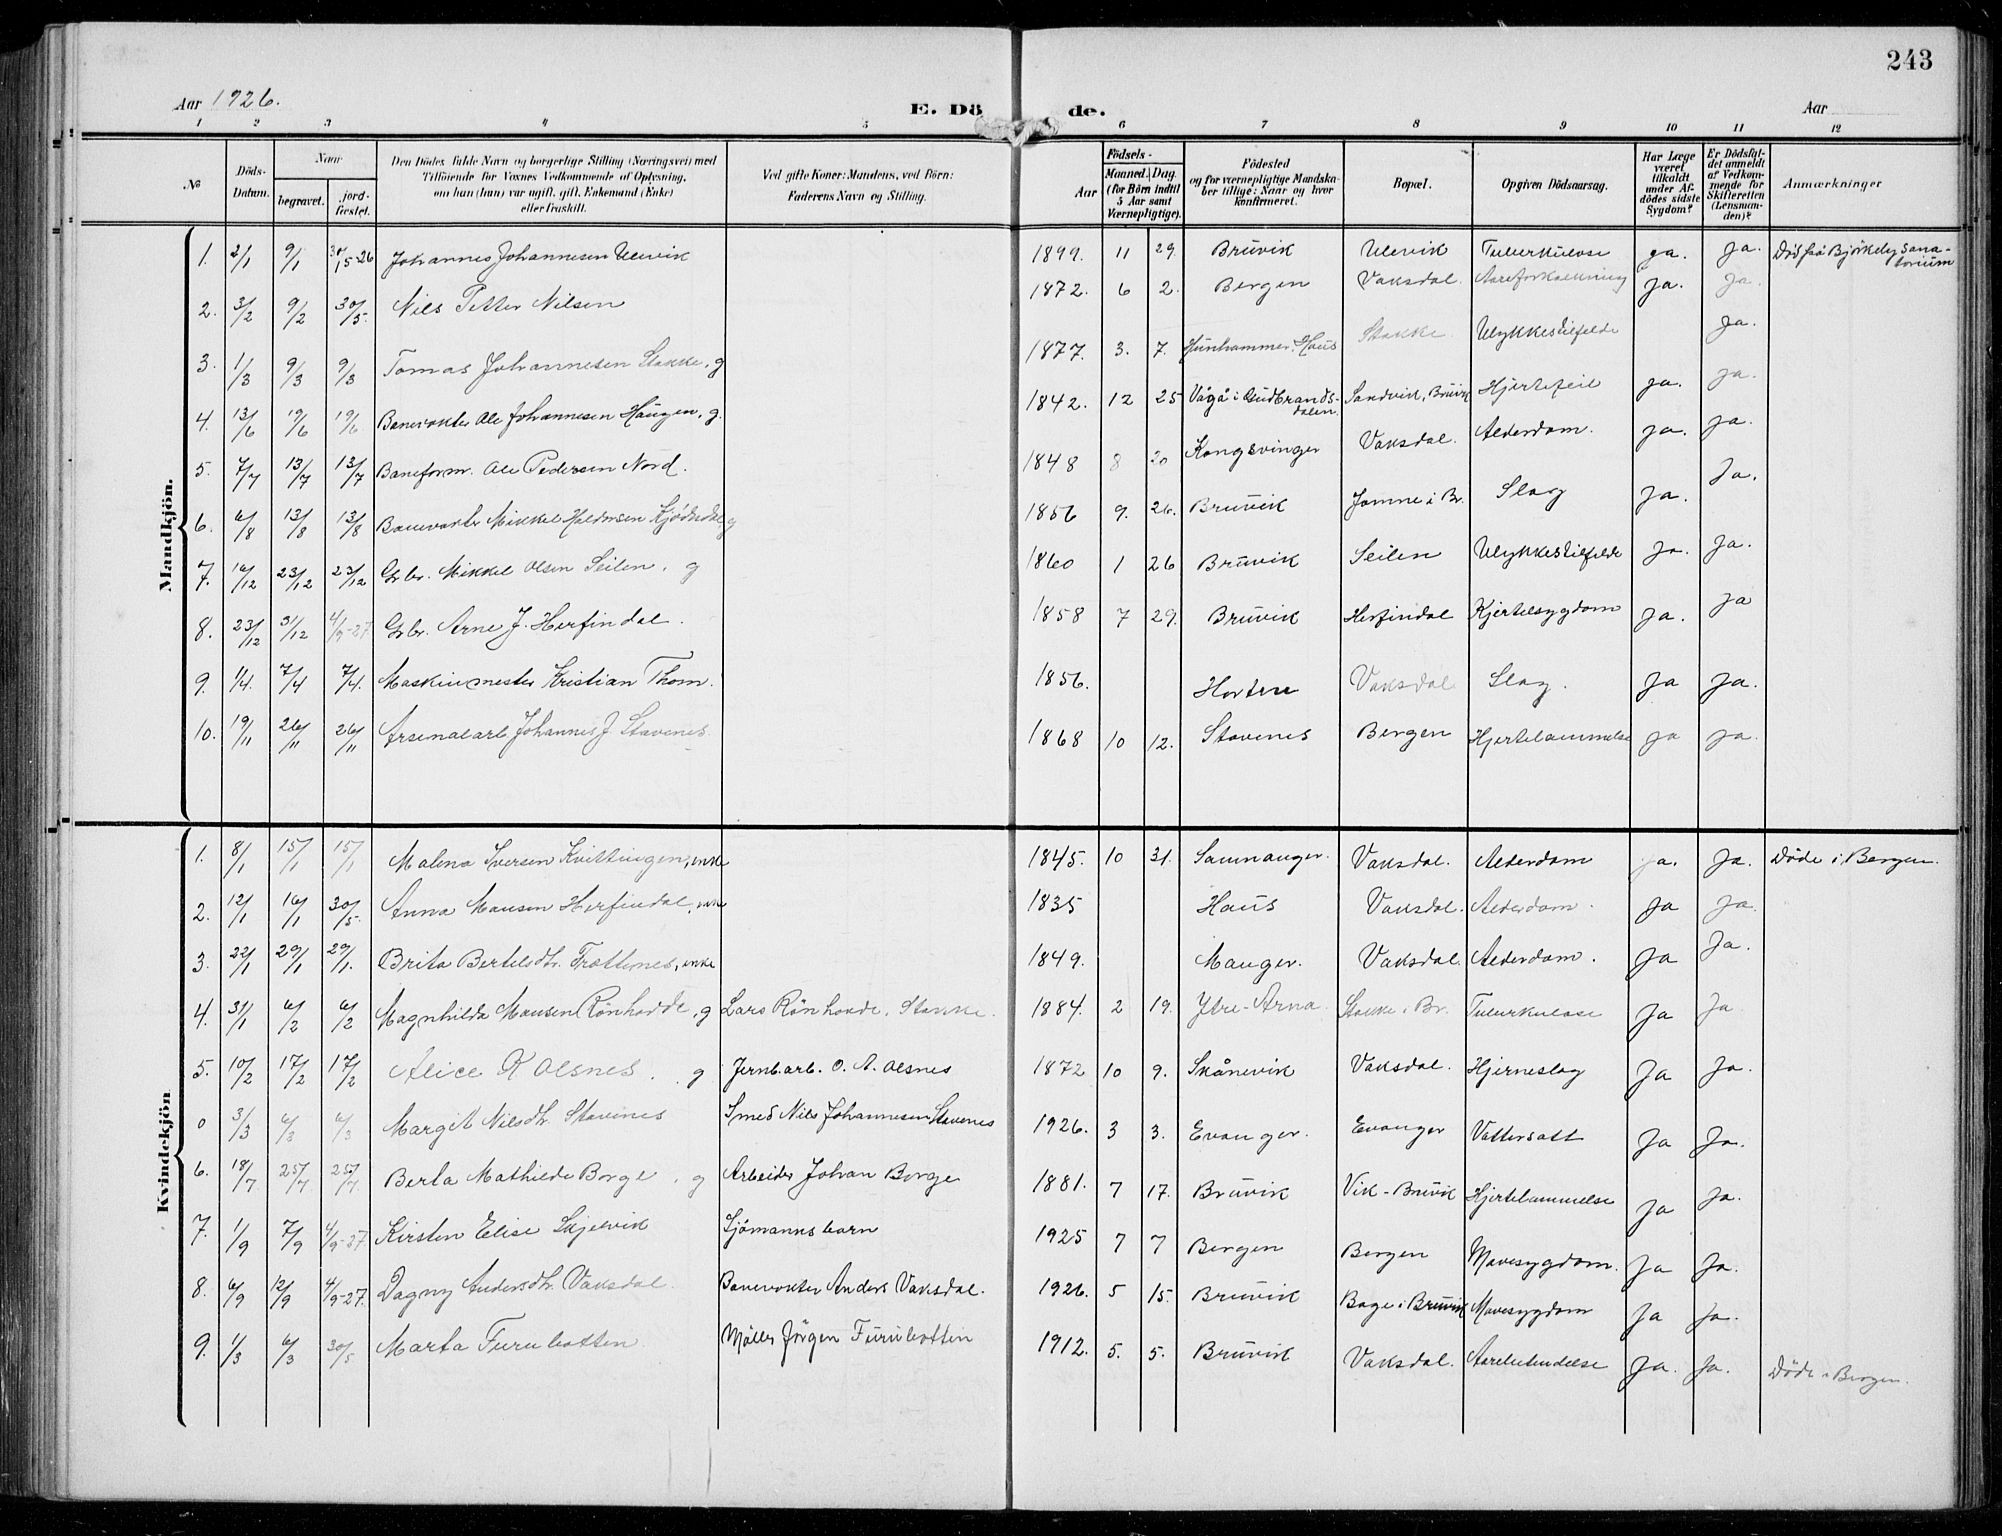 243
Aar 1926.
E. Dö de.
Aar
1 2 3 4 5 6 7 8 9 10 11 12
No
Döds-Datum.
Naar
begravet.
jord-fæstet.
Den Dödes fulde Navn og borgerlige Stilling (Næringsvei) med
Tilföiende for Voxnes Vedkommende af Oplysning,
om han (hun) var ugift, gift, Enkemand (Enke)
eller fraskilt.
Ved gifte Koner: Mandens, ved Börn:
Faderens Navn og Stilling.
Födsels-
Aar
Maaned. Dag.
(for Börn indtil
5 Aar samt
Værnepligtige).
Födested
og for værnepligtige Mandska-
ber tillige: Naar og hvor
konfirmeret.
Bopæl.
Opgiven Dödsaarsag.
Har Læge
været
tilkaldt
under Af-
dödes sidste
Sygdom?
Er Dödsfal-
det anmeldt
af Vedkom-
mende for
Skifteretten
(Lensman-
den)?
Anmærkninger
Mandkjön.
1. 2/1 9/1 30/5-26 Johannes Johannesen Ulevik 1899. 11 29. Bruvik Ulevik Tuberkulose ja. Ja. Död på Björkeby Sana-
torium
2. 3/2 9/2 30/5. Nils Petter Nilsen 1872. 6 2. Bergen Vaksdal. Aareforkalkning Ja. Ja.
3. 1/3 9/3 9/3 Tomas Johannesen Stakke, g 1877. 3. 7. Hunhammer, Haus Stakke Ulykkestilfelde Ja.
4. 13/6 19/6 19/6 Banevokter Ole Johannesen Haugen, g. 1842. 12 25 Vågå i Gudbrands-
dalen. Sandvik, Bruvik Hjertefeil Ja. Ja.
5. 7/7 13/7 13/7 Baneform. Ole Pedersen Nord. 1848 8 20 Kongsvinger Vaksdal. Alderdom. Ja. Ja.
6. 6/8 13/8 13/8 Banevokter Mikkel Haldorsen g 1856 9. 26. Bruvik Jamne i Br. Slag Ja. Ja.
7. 16/12 23/12 23/12 Gbr. Mikkel Olsen Seilen, g 1860 1 26 Bruvik Seilen Ulykkestilfelde Ja. Ja.
8. 23/12 31/12 4/9-27. Gbr. Arne J. Herfindal. 1858 7 29. Bruvik Herfindal Kjertelsygdom Ja. Ja
9. 1/4. 7/4 7/4. Maskinmester Kristian Thom. 1856. Horten Vaksdal Slag. Ja Ja.
10. 19/11 26/11 26/11 Arsenalarb Johannes J. Stavenes. 1868 10 12. Stavenes Bergen Hjertelammelse Ja Ja.
Kvindekjön
1. 8/1 15/1 15/1 Malena Iversen Kvittingen, enke 1845. 10 31. Samnanger. Vaksdal. Alderdom Ja. Ja. Döde i Bergen.
2. 12/1 16/1 30/5. Anna Monsen Herfindal, enke 1835 Haus Vaksdal. Alderdom. Ja Ja.
3. 22/1 29/1 29/1. Brita Bertelsdtr. Trottenes, enke 1849. Manger. Vaksdal. Alderdom. Ja Ja.
4. 31/1 6/2 6/2 Magnhilda Monsen Rönhovde, g Lars Rönhovde, Stakke. 1884. 2 19. Ytre-Arna. Stakke i Br. Tuberkulose Ja Ja.
5. 10/2 17/2 17/2 Alice K Olsnes. g Jernb.arb. O. A. Olsnes 1872 10 9. Skånevik Vaksdal. Hjerneslag Ja Ja.
0 3/3 6/3 6/3 Margit Nilsdtr. Stavenes Smed Nils Johannesen Stavenes 1926. 3 3. Evanger. Evanger Vattersott Ja Ja.
6. 18/7 25/7 25/7. Berta Mathilde Borge, g Arbeider Johan Borge 1881. 7 17. Bruvik Vik-Bruvik Hjertelammelse Ja Ja.
7. 1/9 7/9 4/9-27 Kirsten Elise Skjelvik Sjömanns barn 1925 7 7 Bergen Bergen Mavesygdom. Ja Ja.
8. 6/9 12/9 4/9-27. Dagny Andersdtr. Vaksdal. Banevokter Anders Vaksdal. 1926. 5 15. Bruvik Boge i Bruvik Mavesygdom Ja Ja.
9. 1/3 6/3 30/5 Marta Furubotten. Möller Jörgen Furubotten 1912. 5. 5. Bruvik Vaksdal. Aarebetendelse Ja. Ja. Döde i Bergen.